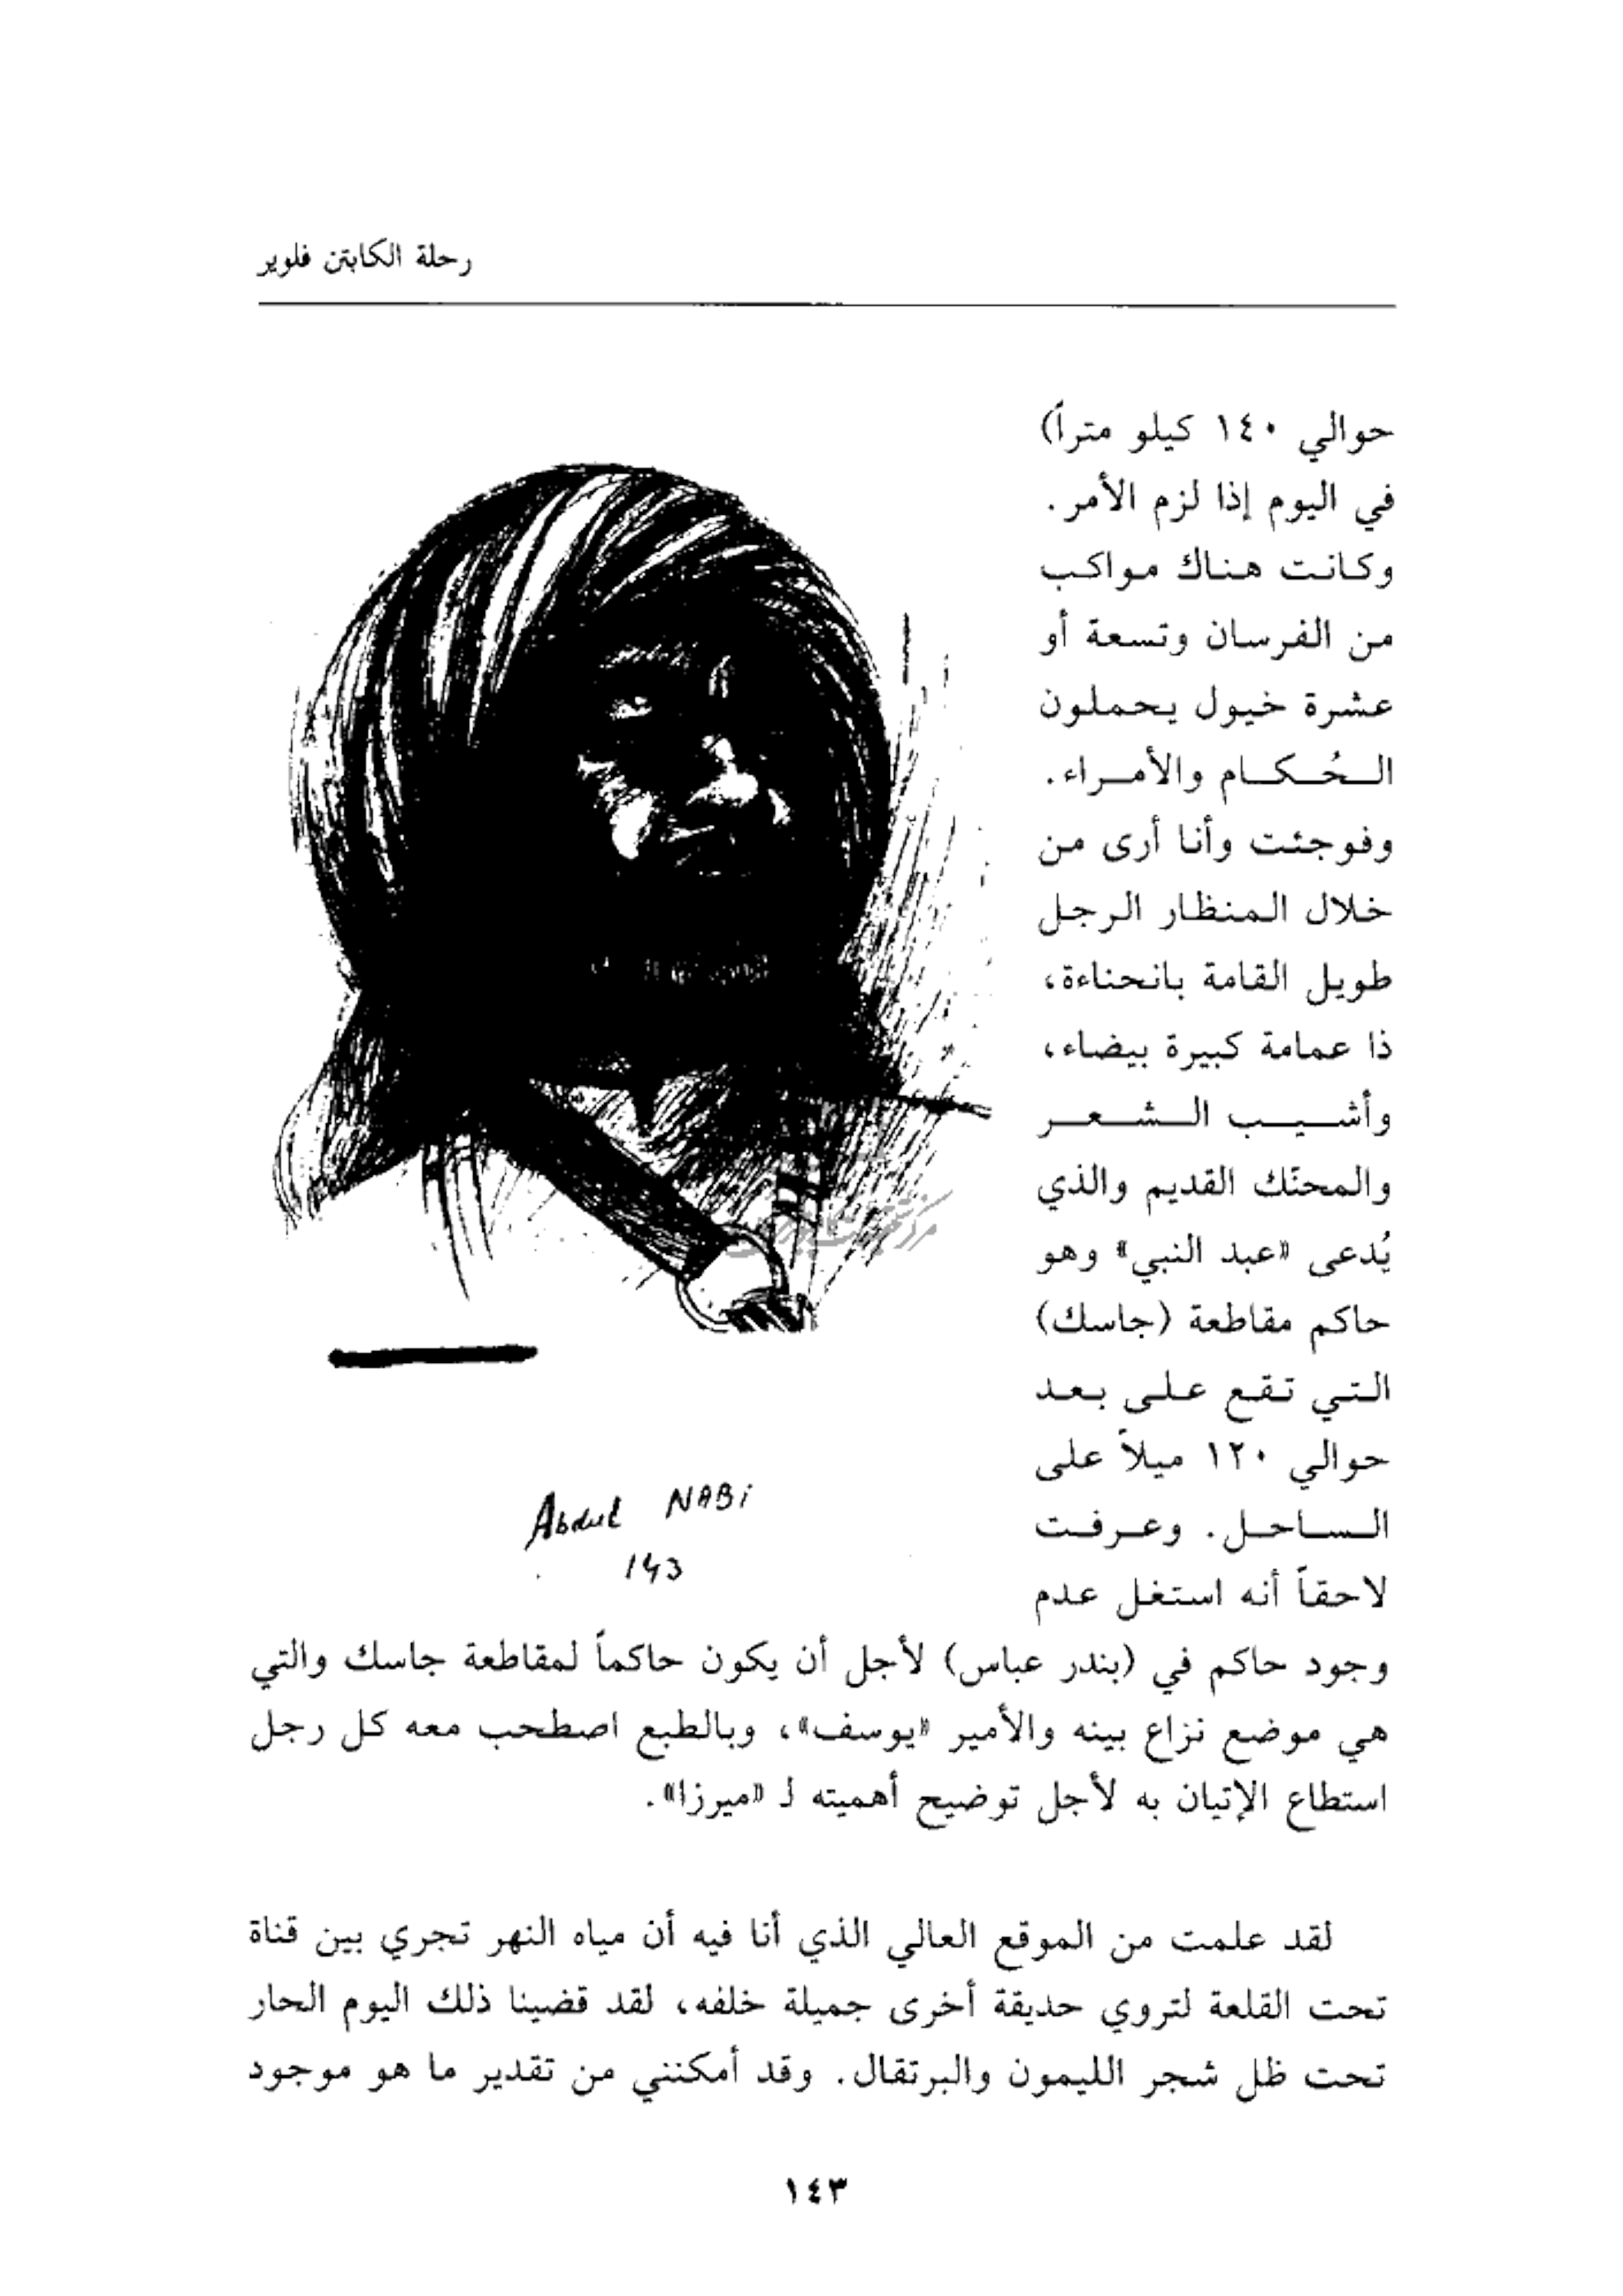 رحلة الكابتن فلوير
حوالي ١٤٠ كيلو متراً)
في اليوم إذا لزم الأمر.
وكانت هناك مواكب
من الفرسان وتسعة أو
عشرة خيول يحملون
الحُكام والأمراء.
وفوجئت وأنا أرى من
خلال المنظار الرجل
طويل القامة بانحناءة،
ذا عمامة كبيرة بيضاء،
وأشيب الشعر
والمحنّك القديم والذي
يُدعى «عبد النبي» وهو
حاكم مقاطعة (جاسك)
التي تقع على بعد
حوالي ١٢٠ ميلاً على
الساحل. وعرفت
لاحقاً أنه استغل عدم
Abdul NABi
143
وجود حاكم في (بندر عباس) لأجل أن يكون حاكماً لمقاطعة جاسك والتي
هي موضع نزاع بينه والأمير «يوسف»، وبالطبع اصطحب معه كل رجل
استطاع الإتيان به لأجل توضيح أهميته لـ «ميرزا».
لقد علمت من الموقع العالي الذي أنا فيه أن مياه النهر تجري بين قناة
تحت القلعة لتروي حديقة أخرى جميلة خلفه، لقد قضينا ذلك اليوم الحار
تحت ظل شجر الليمون والبرتقال. وقد أمكنني من تقدير ما هو موجود
١٤٣